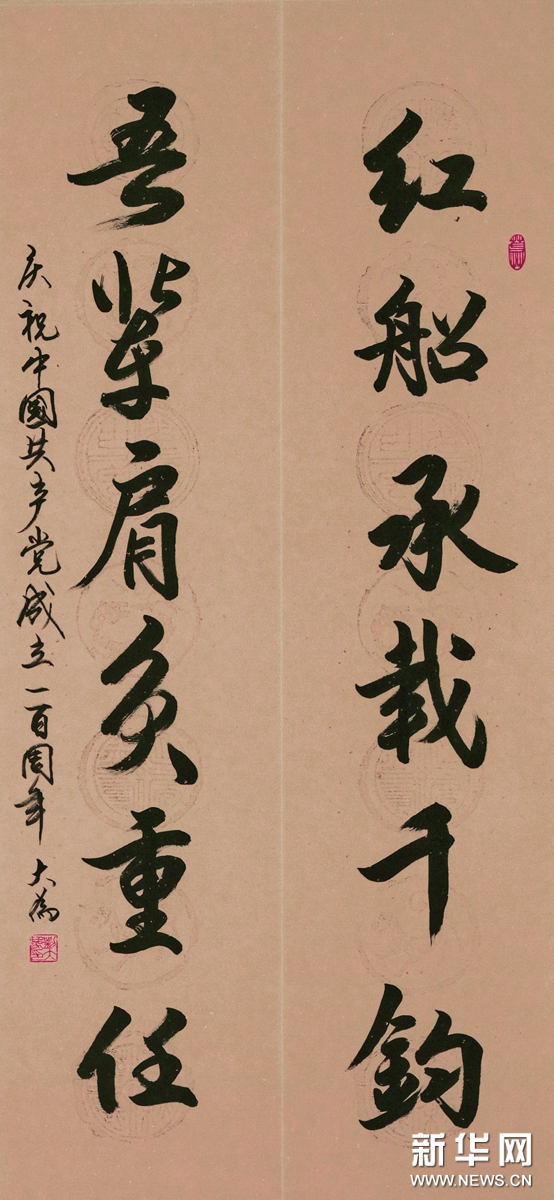 红船承载千钧
吾辈肩负重任
庆祝中國共产党成立一百周年 大為
新华网
WWW.NEWS.CN